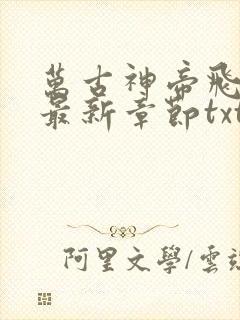 萬古神帝飛
最新章節txt
阿里文學/雲